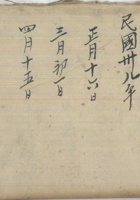 民國卅八年
正月十六日
三月初一日
四月十五日